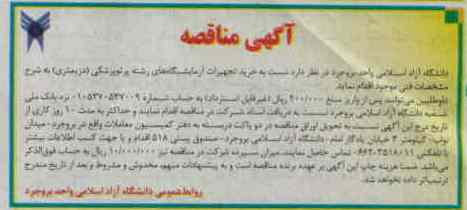 آگهی مناقصه
دانشگاه آزاد اسلامی واحد بروجرد در نظر دارد نسبت به خرید تجهیزات آزمایشگاه‌های رشته پرتوپزشکی (دزیمتری) به شرح
مشخصات فنی موجود اقدام نماید.
داوطلبین می‌توانند پس از واریز مبلغ ۲۰۰/۰۰۰ ریال (غیرقابل استرداد) به حساب شماره نزد بانک ملی
شعبه دانشگاه آزاد اسلامی بروجرد نسبت به دریافت اسناد شرکت در مناقصه اقدام نمایند و حداکثر به مدت ۱۰ روز کاری از
تاریخ درج این آگهی نسبت به تحویل اوراق مناقصه در دو پاکت دربسته به دفتر کمیسیون معاملات واقع در بروجرد - میدان
کیلومتر ۳ خیابان یادگار امام - دانشگاه آزاد اسلامی بروجرد - صندوق پستی ۵۱۸ اقدام و یا جهت کسب اطلاعات بیشتر
با تلفکس تماس حاصل نمایند. میزان سپرده شرکت در مناقصه نیز ۱۰/۰۰۰/۰۰۰ ریال به حساب فوق‌الذکر
می‌باشد. ضمنا هزینه چاپ این آگهی بر عهده برنده مناقصه است و به پیشنهادات مبهم، مخدوش و مشروط و بعد از تاریخ مندرج
ترتیب‌اثر داده نخواهد شد.
روابط عمومی دانشگاه آزاد اسلامی واحد بروجرد